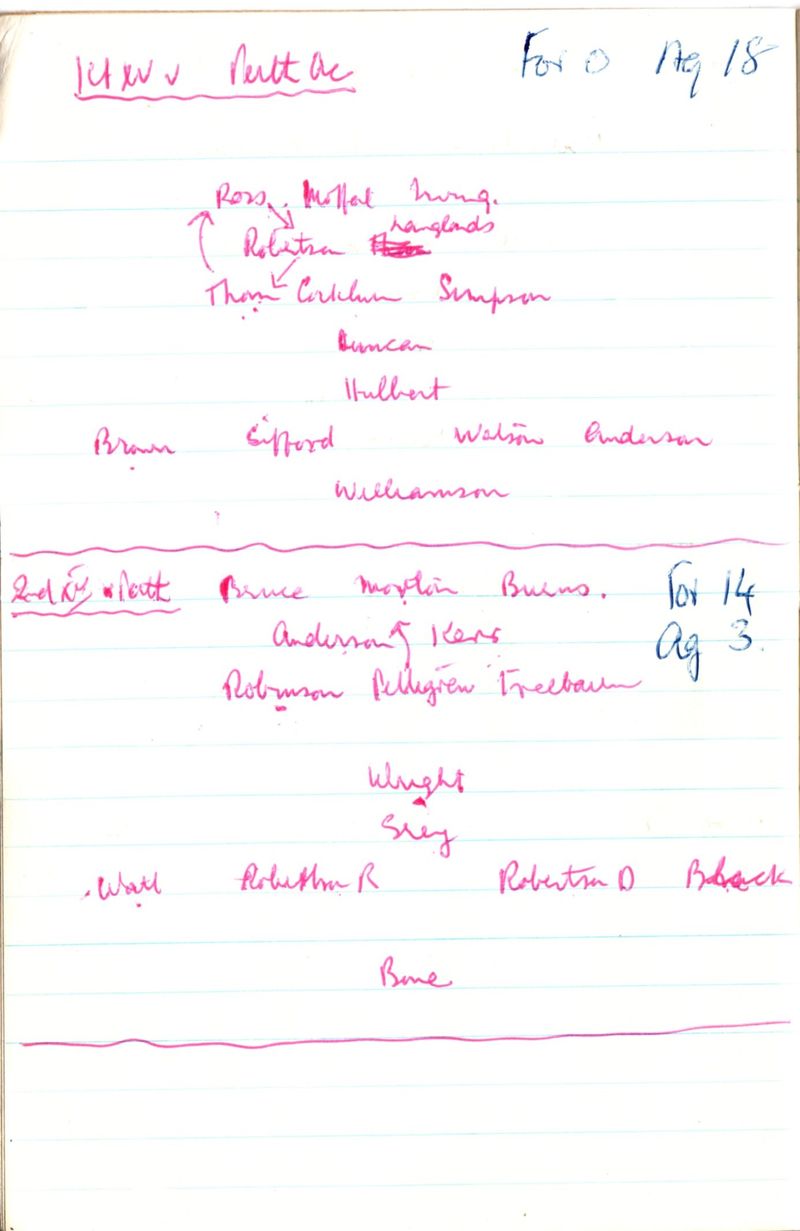 1st XV v Perth Ac For 0 Ag 18
Ross. Moffat Irving.
Langlands
Robertson
Thom Simpson
Duncan
Hulbert
Brown Gifford Watson Anderson
Williamson
2nd XV v Perth Bruce Morton Burns. For 14
Anderson Kerr Ag 3.
Robinson Pellegrew Freebairn
Wright
Grey
Watt Robertson R Robertson D Black
Bone